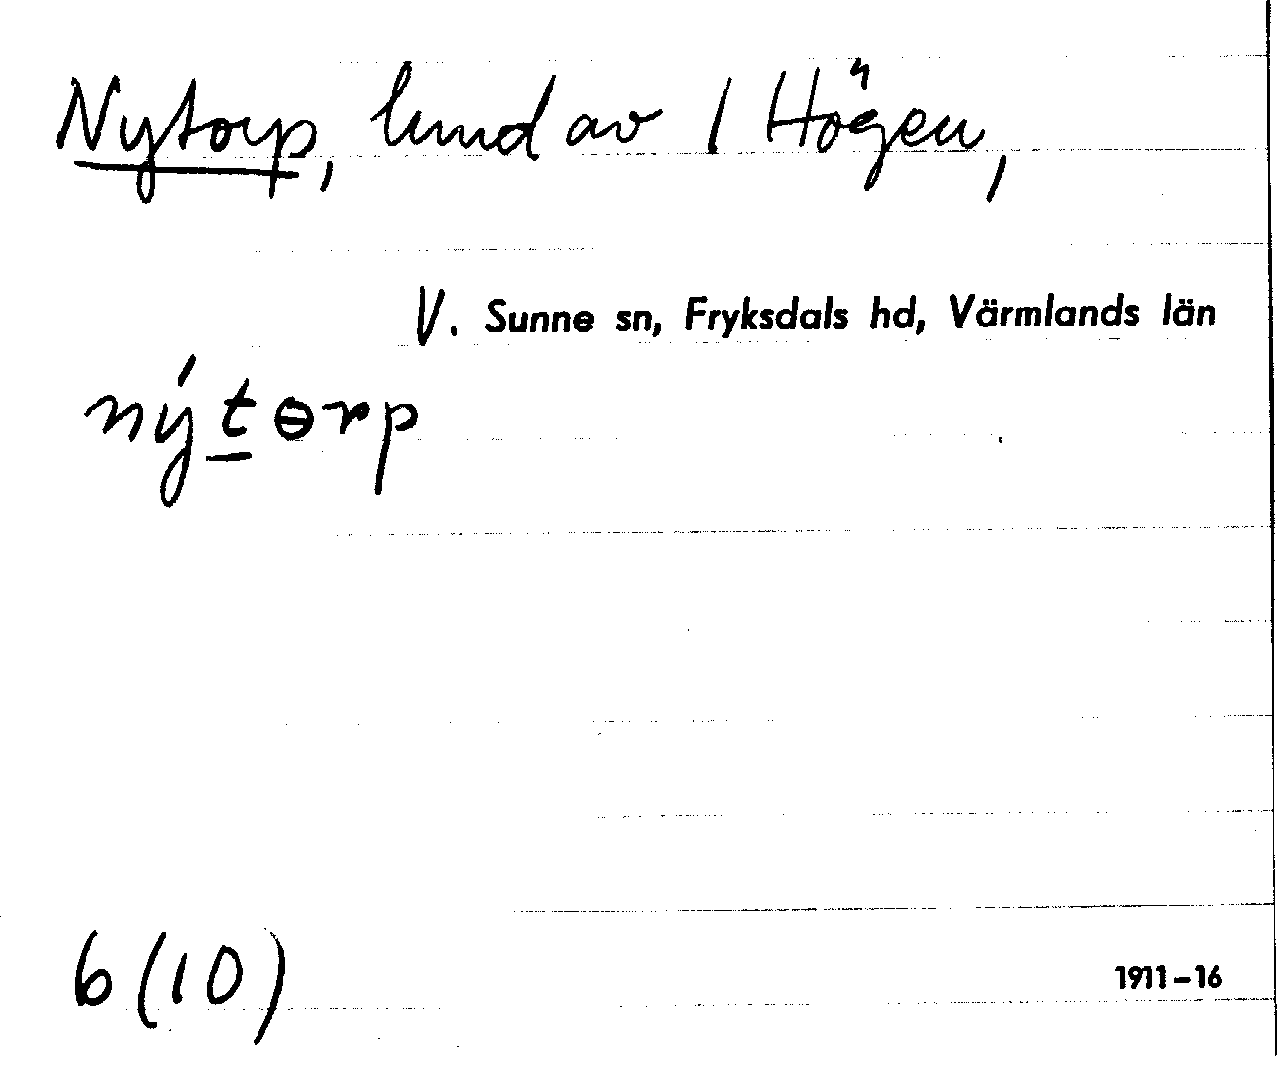 Nytorp, lund av 1 Högen,
V. Sunne sn, Fryksdals hd, Värmlands län
nýtɵrp
6 (10)
1911–16